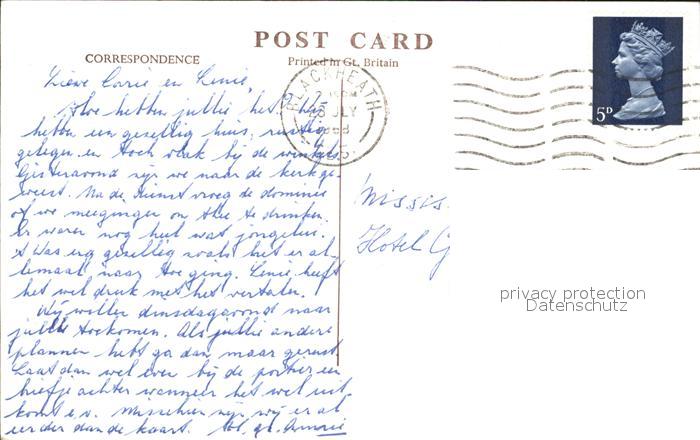 POST CARD
CORRESPONDENCE
Printed in Gt. Britain
BLACKHEATH
JLY
1968
5D
Lieve Corrie en Lenie,
Hoe hebben jullie het? Wij
hebben een gezellig huis, rustig
gelegen en toch vlak bij de winkels.
Gisteravond zijn we naar de kerk ge-
weest. Na de dienst vroeg de dominee
of we meegingen om thee te drinken.
Er waren nog heel wat jongelui.
't Was erg gezellig zoals het er al-
lemaal naar toe ging. Lenie heeft
het wel druk met het vertalen.
Wij willen dinsdagavond naar
jullie toekomen. Als jullie andere
plannen hebt ga dan maar gerust
Laat dan wel even bij de portier een
briefje achter wanneer het wel uit-
komt e.v. Misschien zijn wij er al
eerder dan de kaart. tot. gr.
Misses
Hotel G
privacy protection
Datenschutz